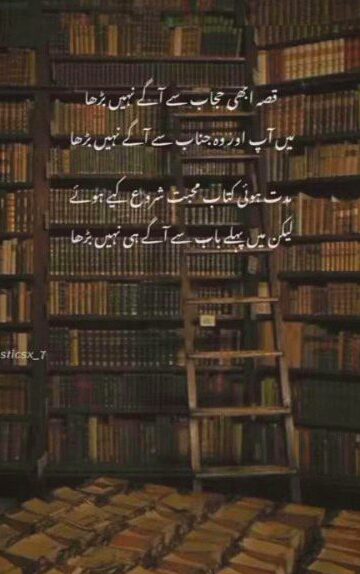 قصہ ابھی حجاب سے آگے نہیں بڑھا
میں آپ اور وہ جناب سے آگے نہیں بڑھا
مدت ہوئی کتاب محبت شروع کیے ہوئے
لیکن میں پہلے باب سے آگے ہی نہیں بڑھا
sticsx_7